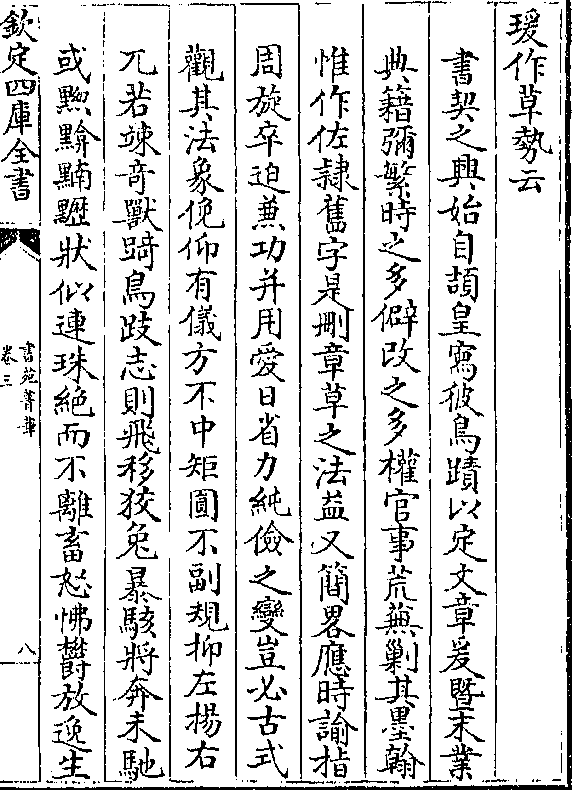 瑗作草勢云
書契之興始自頡皇寫彼鳥蹟以定文章爰暨末業
典籍彌繁時之多僻改之多權官事荒蕪剿其墨翰
惟作佐隷舊字是刪章草之法葢又簡畧應時諭指
周旋卒迫兼功并用愛日省力純儉之變豈必古式
觀其法象俛仰有儀方不中矩圓不副規抑左揚右
兀若竦竒獸跱鳥跂志則飛移狡兔暴駭將奔未馳
或㸃黭䵻狀似連珠絶而不離畜怒怫鬱放逸生
欽定四庫全書
書苑菁華
卷三
八